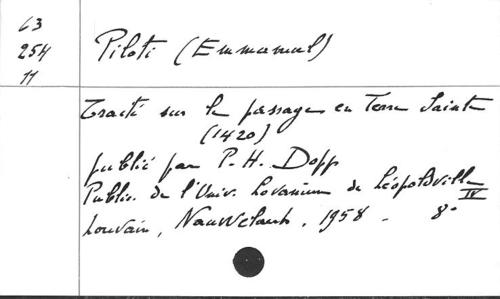 63
254
11
Piloti (Emmanuel)
Traité sur le passage en Terre Sainte
(1420)
publié par P. H. Dopp
Public. de l'Univ. Lovanium de Léopoldville
IV
Louvain, Nauwelaerts, 1958 - 8°